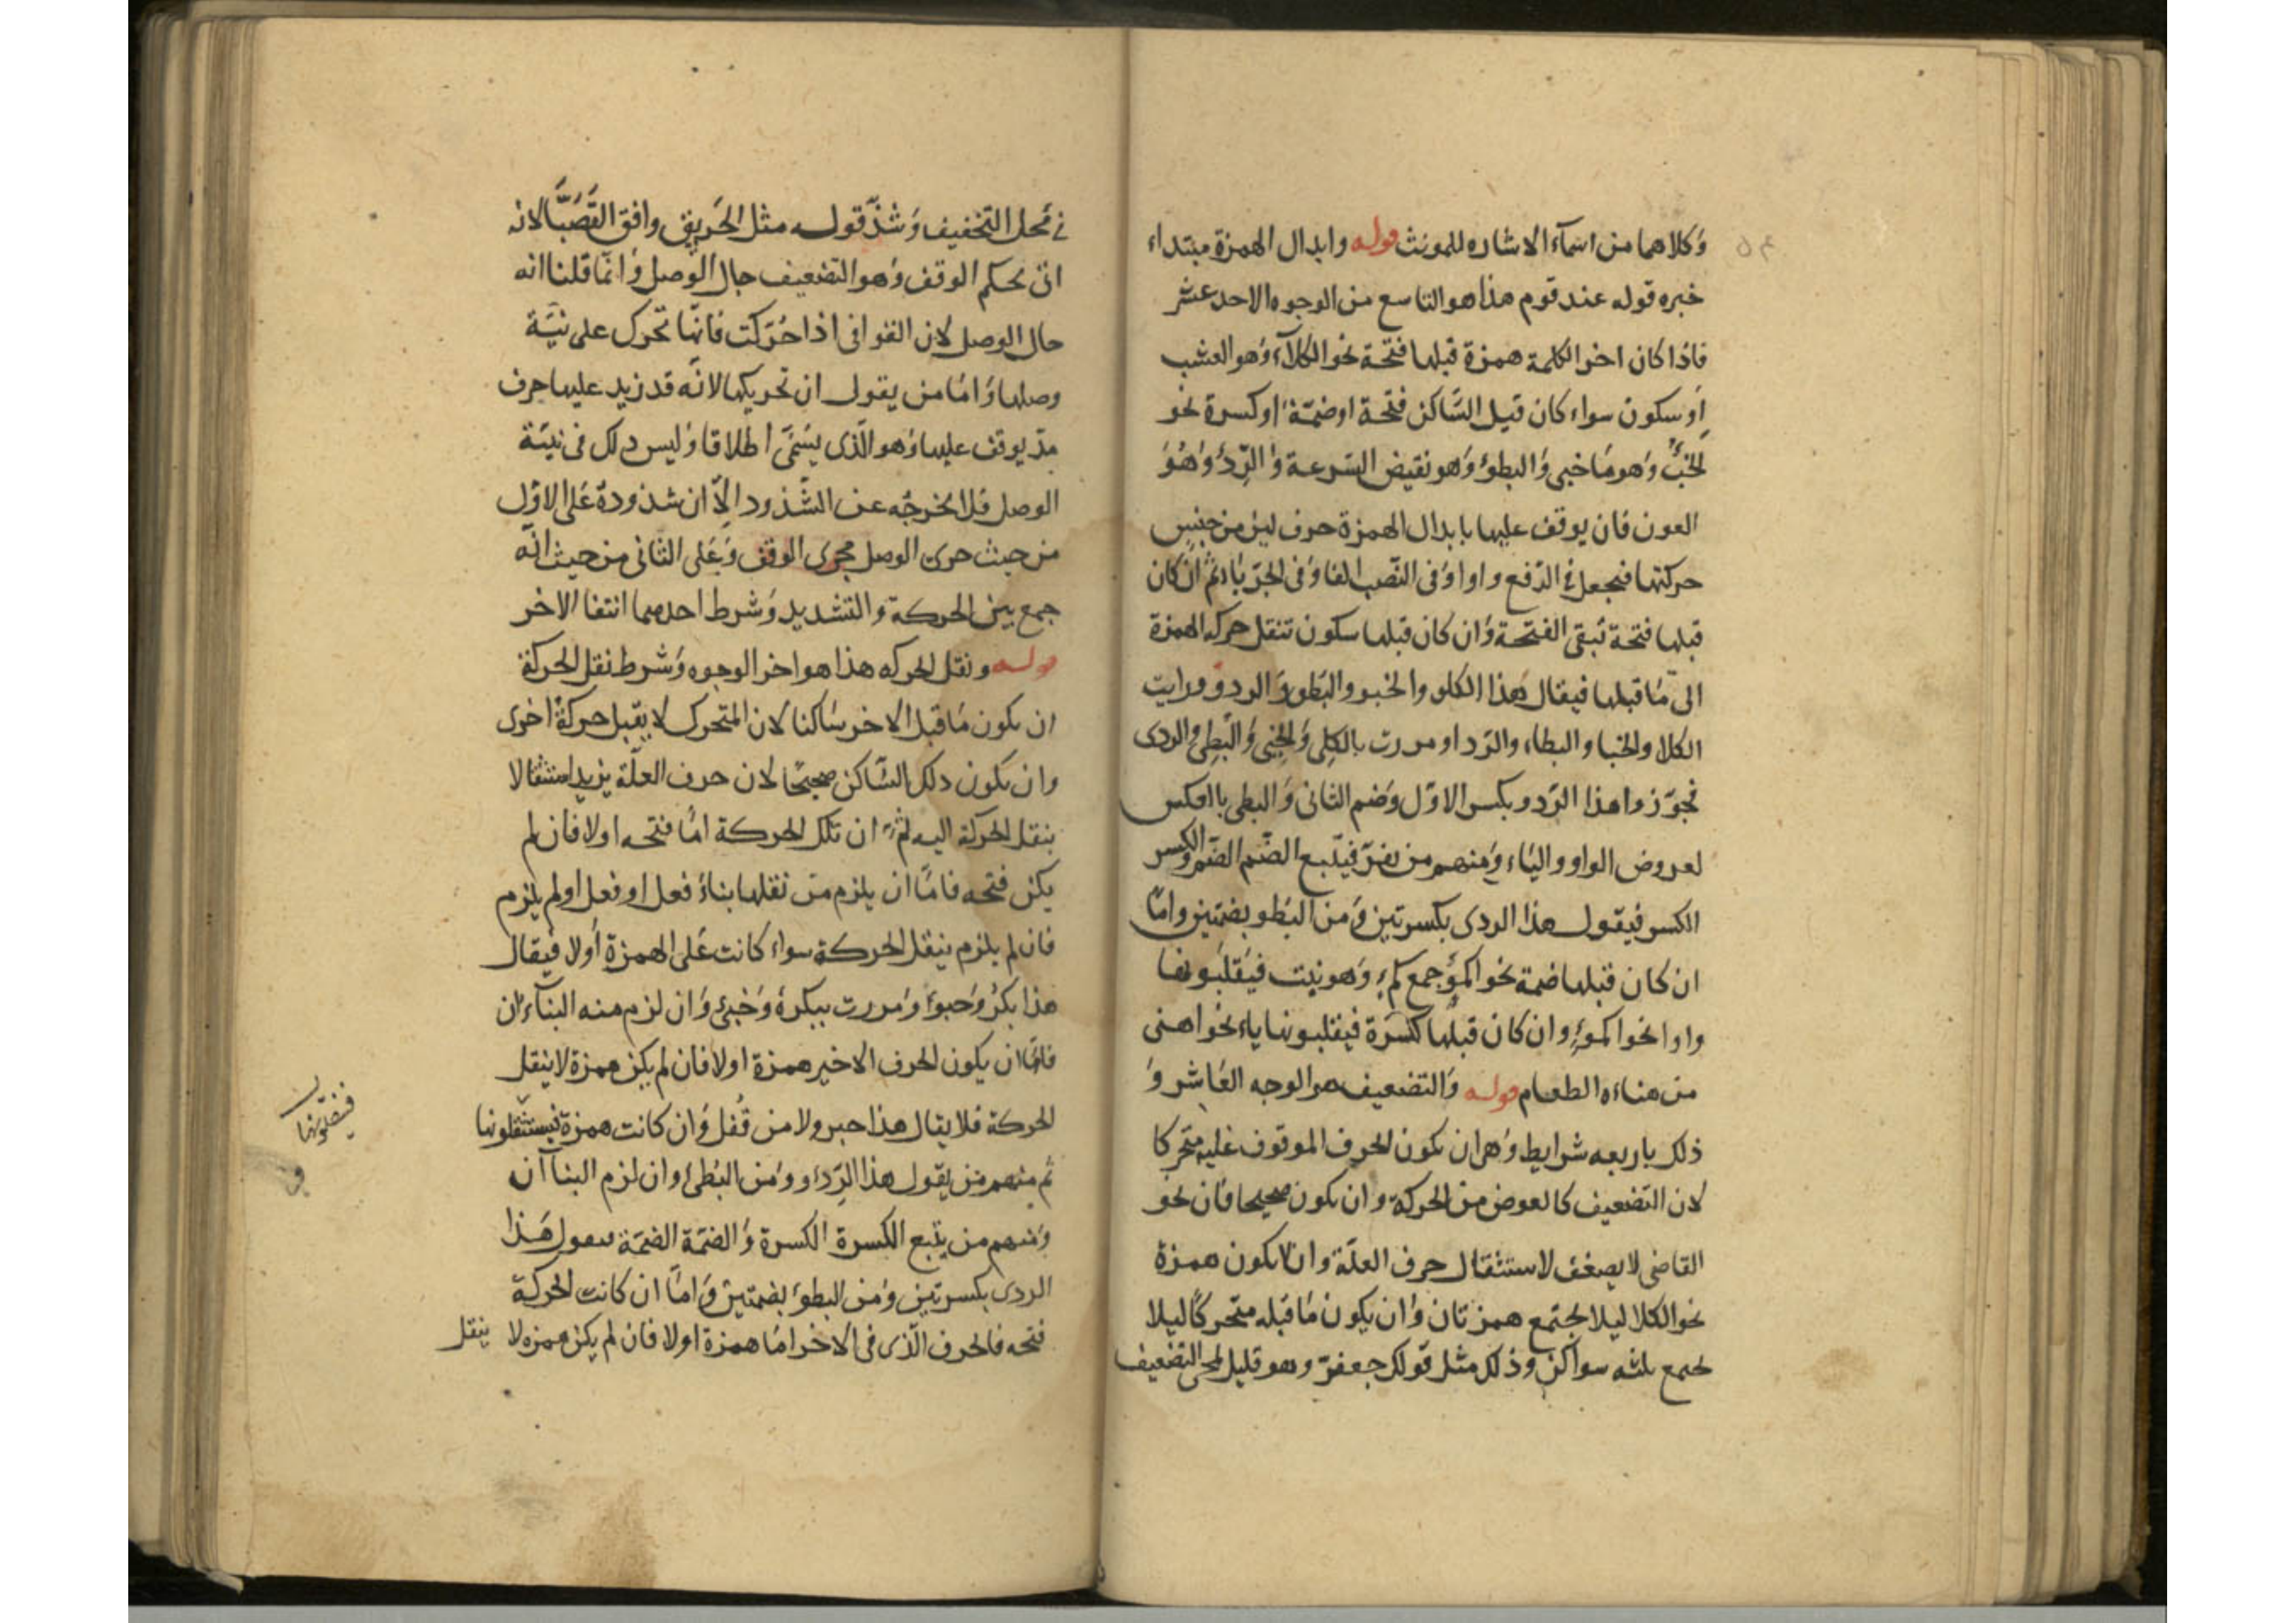 وكلاهما من اسمآء الاشاره للمونث قوله وابدال الهمزة مبتداء
خبره قوله عند قوم هذا هو التاسع من الوجوه الاحد عشر
فاذا كان اخر الكلمة همزة قبلها فتحة نحو الكلآء وهو العشب
او سكون سواء كان قبل السّاكن فتحة او ضمّة او كسرة نحو
الخبْء وهو ما خبى والبطوْ وهو نقيض السّرعة والرِّدْ وهُوَ
العون فان يوقف عليها بابدال الهمزة حرف لين من جنس
حركتها فنجعل فى الرّفع واوا وفى النّصب الفا وفى الجرّ ياء ثم ان كان
قبلها فتحة تبقى الفتحة وان كان قبلها سكون تنقل حركه الهمزة
الى ما قبلها فيقال هذا الكلو والخبو والبطو والردو ورايت
الكلا والخبا والبطاء والرّدا ومررت بالكلى والخبى والبطى والردى
نجوّزوا هذا الرّدو بكسر الاوّل وضم الثانى والبطى بالعكس
لعروض الواو والياء ومنهم من يفرّ فيتبع الضّم الضّم والكسر
الكسر فيقول هذا الردى بكسرتين ومن البُطو بضمتين وامّا
ان كان قبلها ضمة نحو اكمؤ جمع كمء وهو نبت فيقلبونها
واوا نحو اكمو وان كان قبلها كسرة فيقلبونها ياء نحو اهنى
من هناءه الطعام قوله والتضعيف هو الوجه العاشر و
ذلك باربعه شرايط وهى ان يكون الحرف الموقوف عليه متحركا
لان التضعيف كالعوض من الحركة وان يكون صحيحا فان نحو
القاضى لا يضعف لاستثقال حرف العلّة وان لا يكون همزة
نحو الكلا ليلا يجتمع همزتان وان يكون ما قبله متحركًا ليلا
يجتمع ثلثه سواكن وذلك مثل قولك جعفرّ وهو قليل لمجى التضعيف
فى محل التخفيف وشذّ قوله مثل الحريق وافق القَصَبَّا لانه
اتى بحكم الوقف وهو التضعيف حال الوصل وانما قلنا انه
حال الوصل لان القوافى اذا حُرّكت فانها تحرك على نيّة
وصلها وامّا من يقول ان تحريكها لانّه قد زيد عليها حرف
مدّ يوقف عليها وهو الّذى يسمّى اطلاقا وليس ذلك فى نيّة
الوصل فلا يخرجه عن الشّذوذ الّا ان شذوذه على الاوّل
من حيث جرى الوصل مجرى الوقف وعلى الثانى من حيث انّه
جمع بين الحركة والتشديد وشرط احدهما انتفا الاخر
قوله ونقل الحركه هذا هو اخر الوجوه وشرط نقل الحركة
ان يكون ما قبل الاخر ساكنا لان المتحرك لا يقبل حركة اخرى
وان يكون ذلك السّاكن صحيحًا لان حرف العلّة يزيد استثقالا
بنقل الحركة اليه ثمّ ان تلك الحركة امّا فتحه اولا فان لم
يكن فتحه فامّا ان يلزم من نقلها بناء فعل او فعل او لم يلزم
فان لم يلزم ينقل الحركة سواء كانت على الهمزة اولا فيقال
هذا بكر وخبوء ومررت ببكر وخبئ وان لزم منه البنآءان
فامّا ان يكون الحرف الاخير همزة اولا فان لم يكن همزة لا ينقل
الحركة فلا يقال هذا حبر ولا من قُفل وان كانت همزة فيستثقلونها
ثم منهم من يقول هذا الرّدؤ ومن البُطئ وان لزم البنآآن
ومنهم من يتبع الكسرة الكسرة والضمّة الضمّة فيقول هَذا
الردى بكسرتين ومن البطوء بضمتين وامّا ان كانت الحركة
فتحه فالحرف الّذى فى الاخر امّا همزة اولا فان لم يكن همزه لا ينقل
فينقلونها